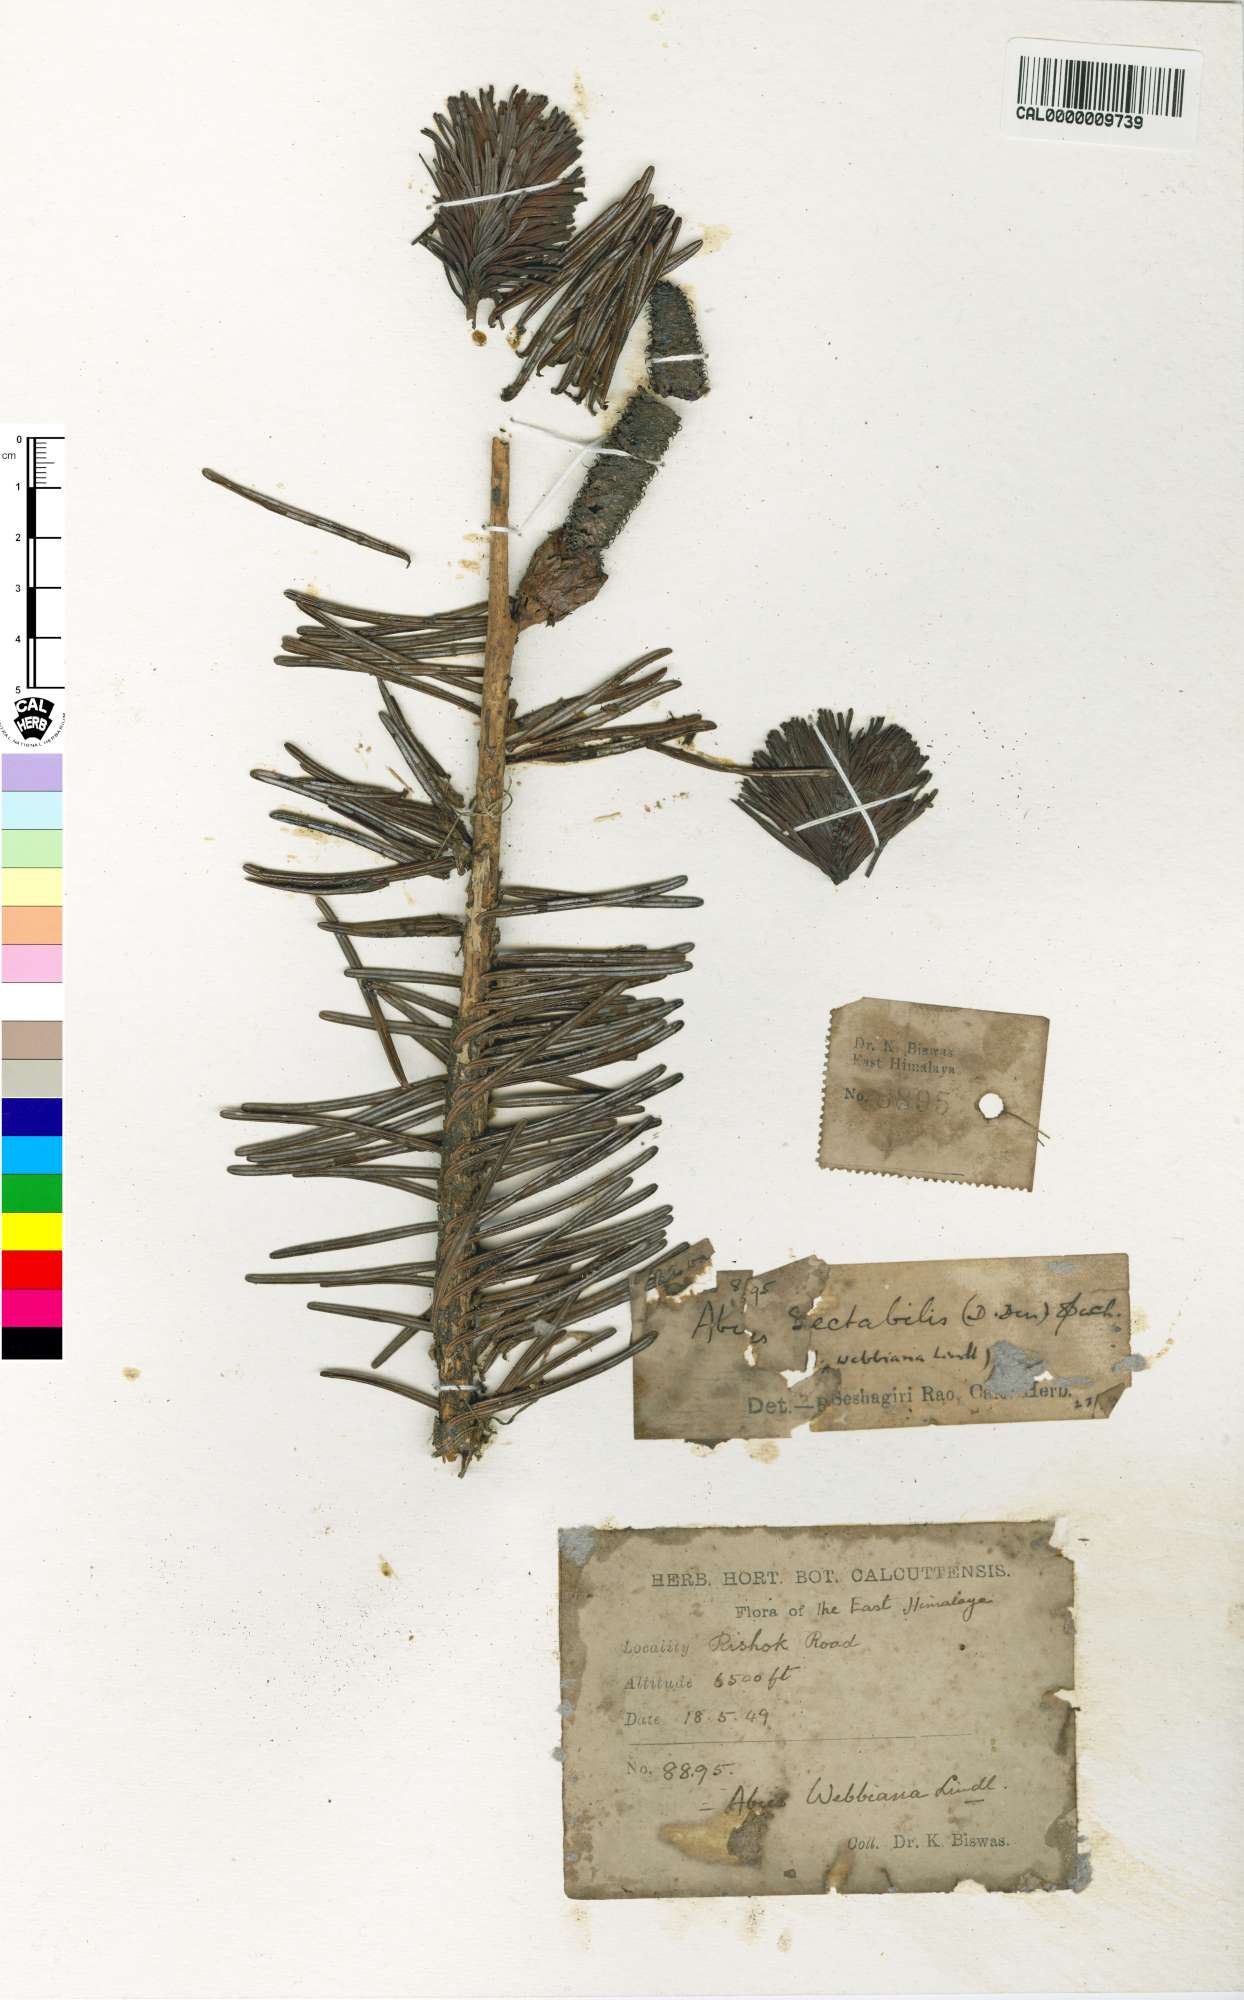 CAL0000009739
0
cm
1
2
3
4
5
CAL
HERB
CENTRAL NATIONAL HERBARIUM
Dr. K. Biswas
East Himalaya
No. 8895
8895
Abies sectabilis (D. Don) Spach.
Webbiana Lindl)
Det.—R Seshagiri Rao, Calc. Herb.
HERB. HORT. BOT. CALCUTTENSIS.
Flora of the East Himalaya
Locality Rishok Road
Altitude 6500 ft
Date 18.5.49
No. 8895.
= Abies Webbiana Lindl.
Coll. Dr. K. Biswas.